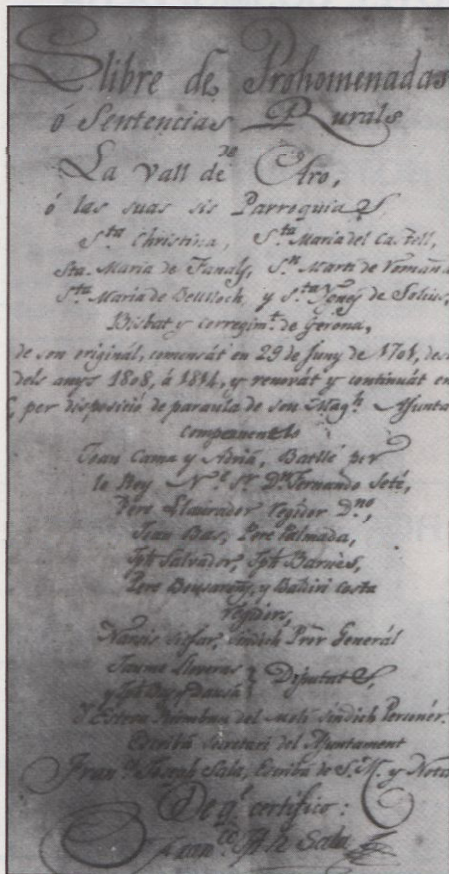 Llibre de Prohomenadas
ó Sentencias Rurals
La Vall de Aro,
ó las suas sis Parroquias
Sta. Christina, Sta. Maria del Castell,
Sta. Maria de Fanals, Sn. Martí de Romañá
Sta. Maria de Bellloch, y Sta. Ynes de Solius,
Bisbat y corregimt. de Gerona,
de son original, comensát en 29 de Juny de 1701, des
dels anys 1808, á 1814, y renovát y continuát en
per disposició de paraula de son Magh. Ajunta
componentlo
Joan Cama y Adriá, Batlle per
lo Rey N. Sr. Dn. Fernando Seté,
Pere Llaurador Regidor D.no,
Joan Bas, Pere Palmada,
Jph Salvador, Jph Barnés,
Pere y Baldiri Costa
Regidors,
Narcis Sicfar, Sindich Pror General
Jaume Lloveras
y Jph Deputats,
Y Esteva del Molí Sindich Personér.
Escribá Secretari del Ajuntament
Fran.co Joseph Sala, Escribá de S. M. y Nota
De q.e certifico:
Fran.co Jph Sala